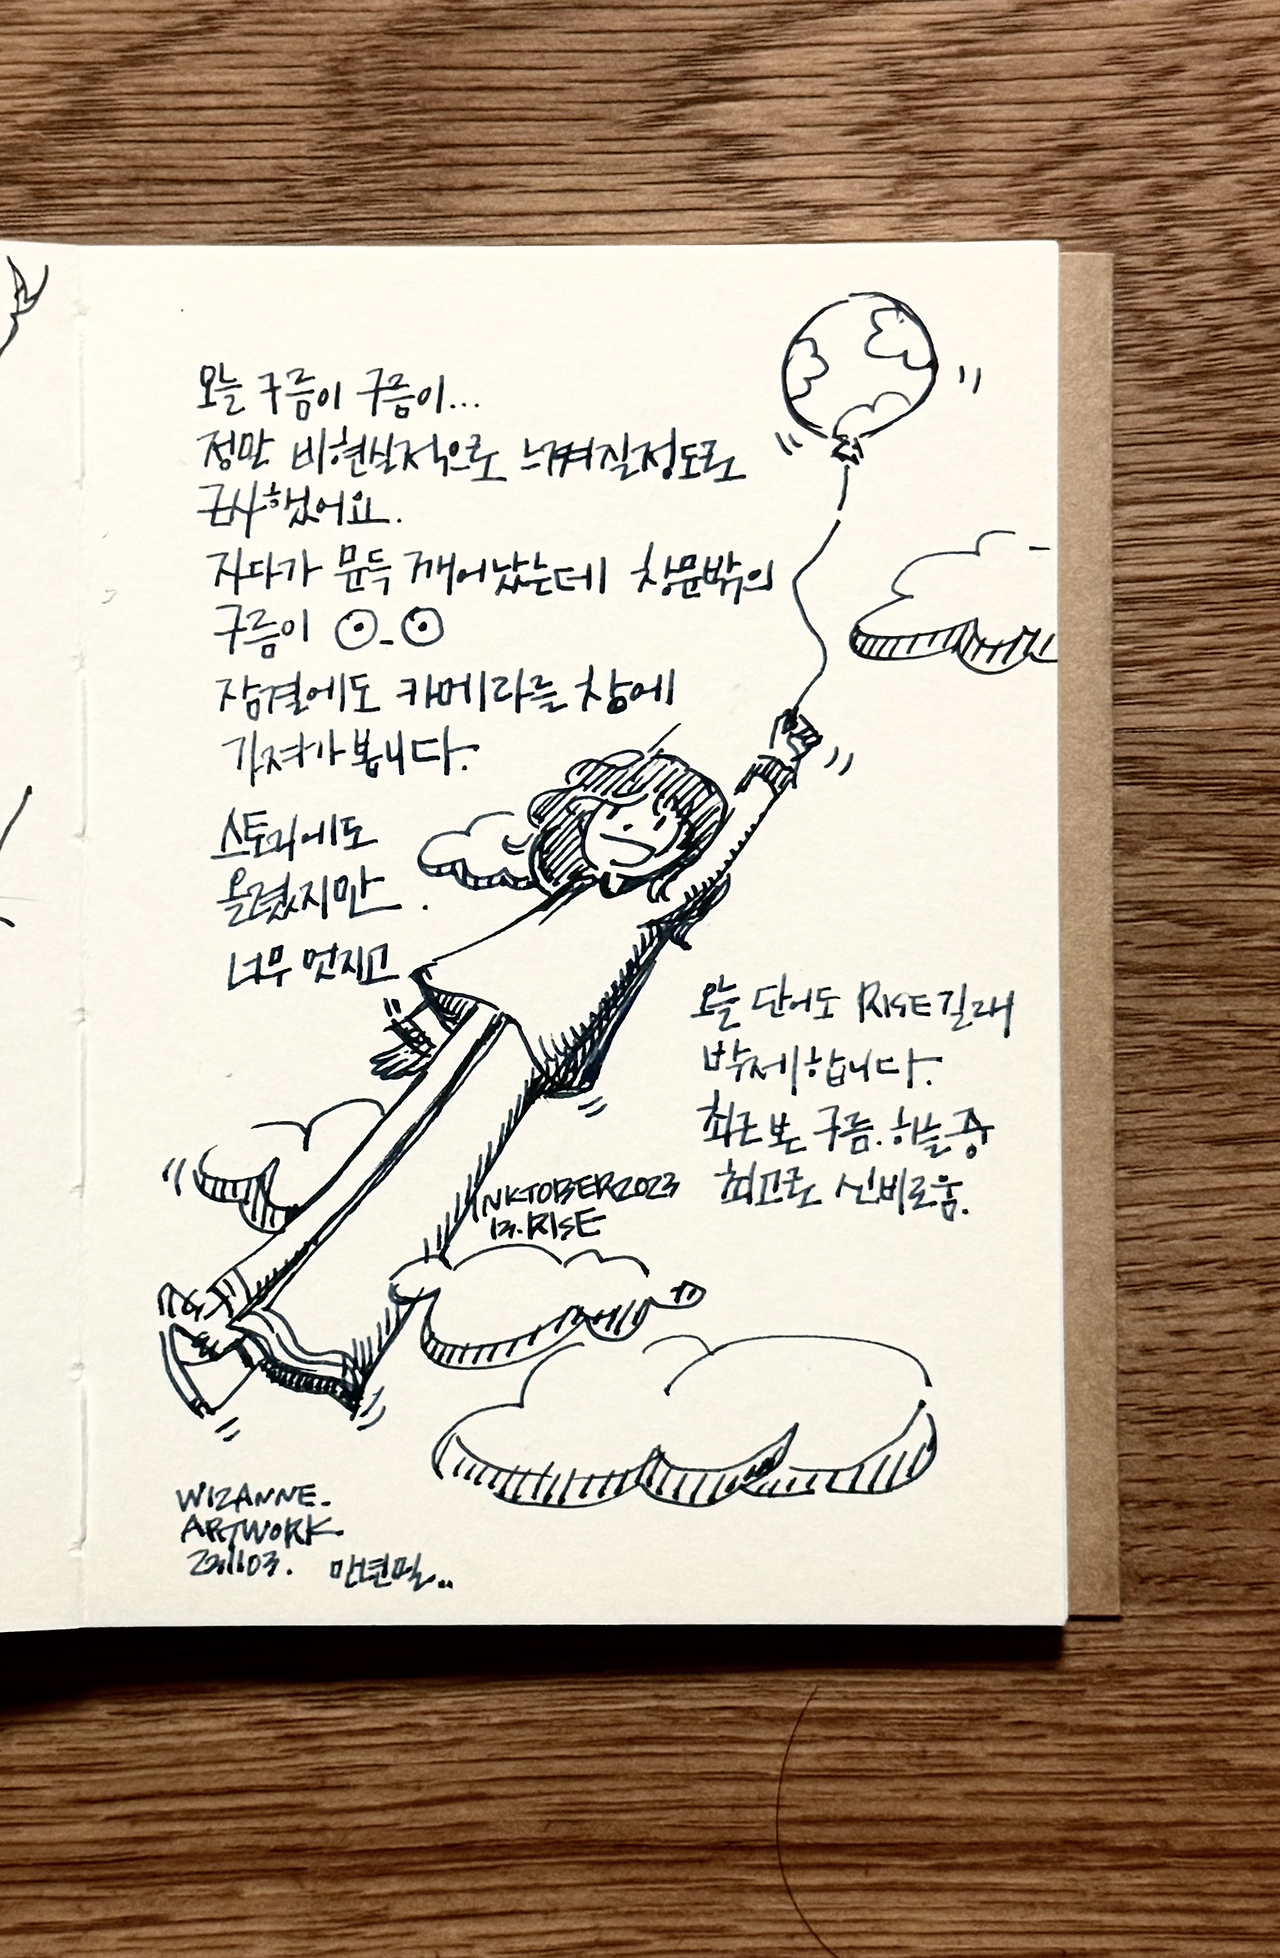 오늘 구름이 구름이...
정말 비현실적으로 느껴질정도로
근사했어요.
자다가 문득 깨어났는데 창문밖의
구름이 ⊙_⊙
잠결에도 카메라를 창에
가져가봅니다.
스토리에도
올렸지만
너무 멋지고
오늘 단어도 RISE길래
박제합니다.
최근 본 구름.하늘 중
최고로 신비로움.
INKTOBER2023
13.RISE
WIZANNE.
ARTWORK
231103. 만년필..